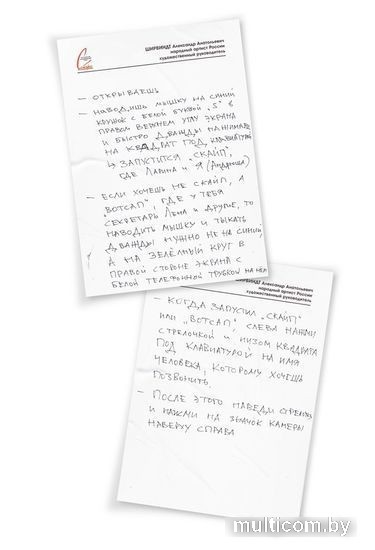 ШИРВИНДТ Александр Анатольевич
народный артист России
художественный руководитель
— ОТКРЫВАЕШЬ
— НАВОДИШЬ МЫШКУ НА СИНИЙ
КРУЖОК С БЕЛОЙ БУКВОЙ „S" В
ПРАВОМ ВЕРХНЕМ УГЛУ ЭКРАНА
И БЫСТРО ДВАЖДЫ НАЖИМАЕШЬ
НА КВАДРАТ ПОД КЛАВИАТУРОЙ
↳ ЗАПУСТИТСЯ „СКАЙП",
ГДЕ ЛАРИНА И Я (Андрюша)
— ЕСЛИ ХОЧЕШЬ НЕ СКАЙП, А
„ВОТСАП", ГДЕ У ТЕБЯ
СЕКРЕТАРЬ ЛЕНА И ДРУГИЕ, ТО
НАВОДИТЬ МЫШКУ И ТЫКАТЬ
ДВАЖДЫ НУЖНО НЕ НА СИНИЙ,
А НА ЗЕЛЁНЫЙ КРУГ В
ПРАВОЙ СТОРОНЕ ЭКРАНА С
БЕЛОЙ ТЕЛЕФОННОЙ ТРУБКОЙ НА НЁМ
ШИРВИНДТ Александр Анатольевич
народный артист России
художественный руководитель
— КОГДА ЗАПУСТИЛ „СКАЙП"
ИЛИ „ВОТСАП", СЛЕВА НАЖМИ
СТРЕЛОЧКОЙ И НИЗОМ КВАДРАТА
ПОД КЛАВИАТУРОЙ НА ИМЯ
ЧЕЛОВЕКА, КОТОРОМУ ХОЧЕШЬ
ПОЗВОНИТЬ.
— ПОСЛЕ ЭТОГО НАВЕДИ СТРЕЛКУ
И НАЖМИ НА ЗНАЧОК КАМЕРЫ
НАВЕРХУ СПРАВА
multicom.by